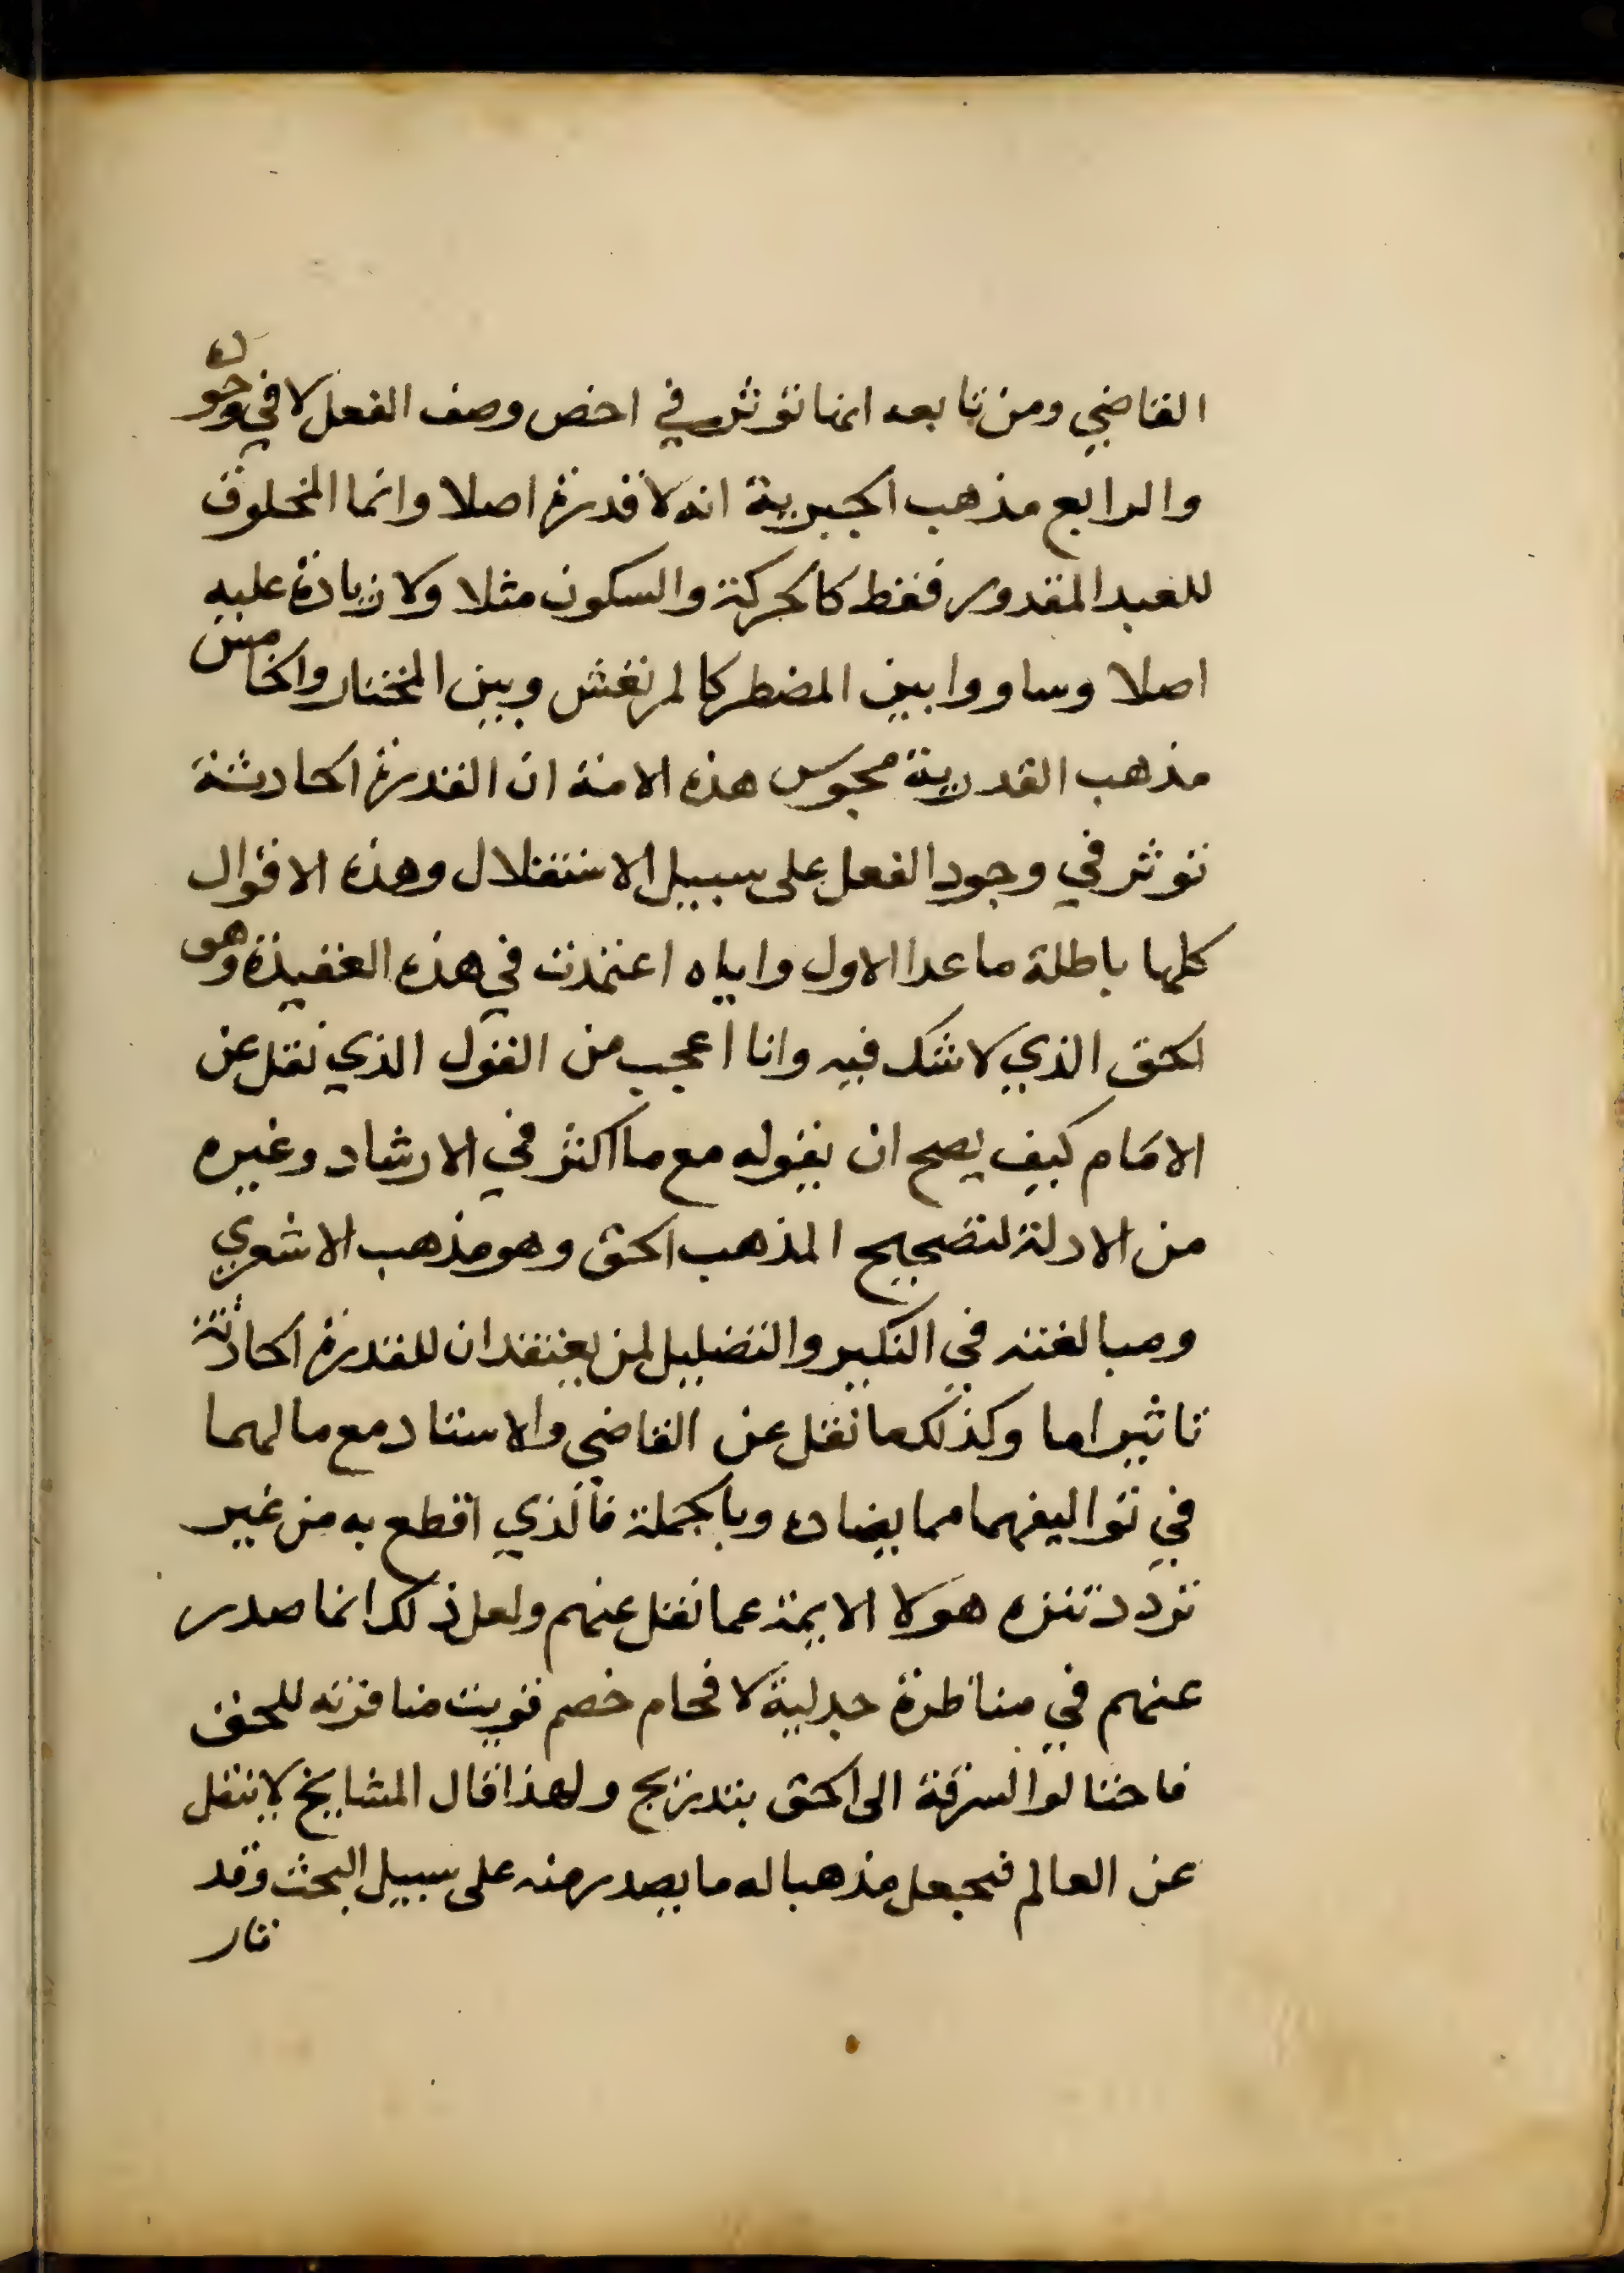 القاضي ومن تابعه انما تؤثر في اخص وصف الفعل لا في وجوده
والرابع مذهب الجبرية انه لا قدرة اصلا وانما المخلوق
للعبد المقدور فقط كالحركة والسكون مثلا ولا زيادة عليه
اصلا وساووا بين المضطر كالمرتعش وبين المختار والخامس
مذهب القدرية مجوس هذه الامة ان القدرة الحادثة
تؤثر في وجود الفعل على سبيل الاستقلال وهذه الاقوال
كلها باطلة ما عدا الاول واياه اعتمدت في هذه العقيدة وهو
الحق الذي لا شك فيه وانا اعجب من القول الذي نقل عن
الامام كيف يصح ان يقوله مع ما اكثر في الارشاد وغيره
من الادلة لتصحيح المذهب الحق وهو مذهب الاشعري
ومبالغته في النكير والتضليل لمن يعتقد ان للقدرة الحادثة
تاثيرا ما وكذلك ما نقل عن القاضي والاستاد مع ما لهما
في تواليفهما مما يضاده وبالجملة فالذي اقطع به من غير
تردد تنزه هولا الايمة عما نقل عنهم ولعل ذلك انما صدر
عنهم في مناظرة جدلية لافحام خصم قويت منافرته للحق
فاحتالوا لسرقة الى الحق بتدريج ولهذا قال المشايخ لا ينقل
عن العالم فيجعل مذهبا له ما يصدر منه على سبيل البحث وقد